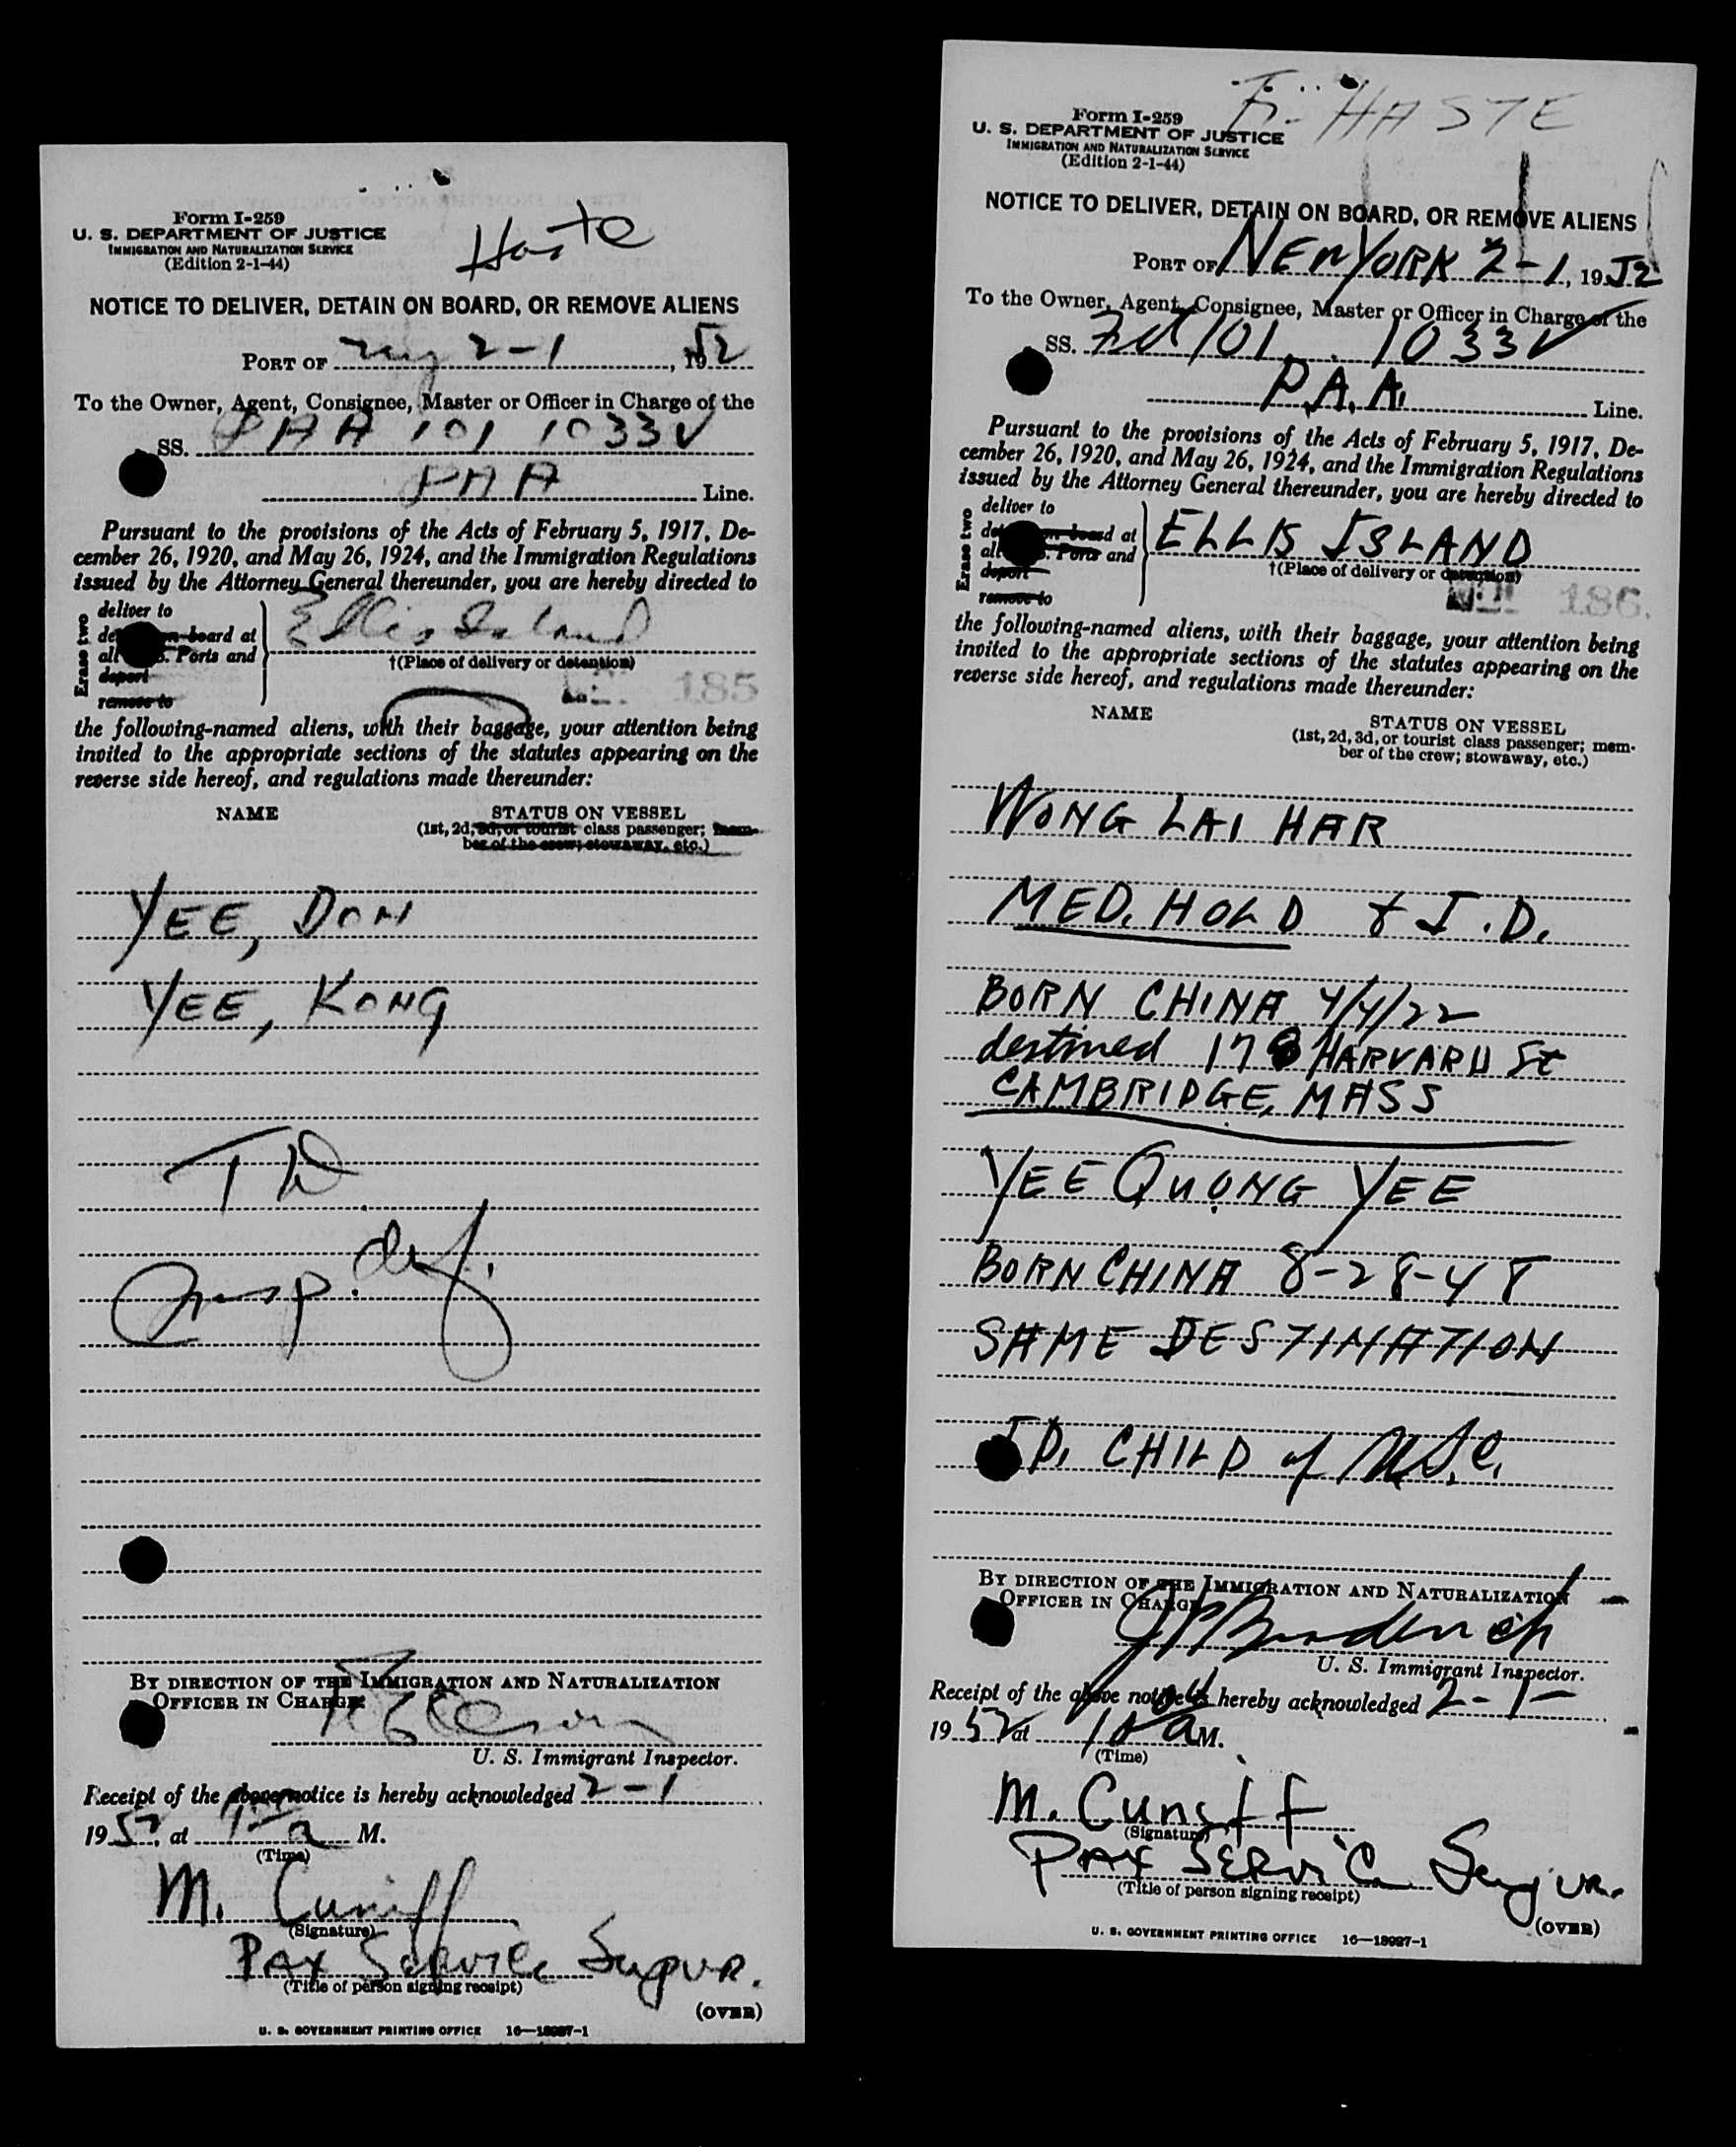 Form I-259
U. S. DEPARTMENT OF JUSTICE
IMMIGRATION AND NATURALIZATION SERVICE
(Edition 2-1-44)
Haste
NOTICE TO DELIVER, DETAIN ON BOARD, OR REMOVE ALIENS
PORT OF NY 2-1, 1952
To the Owner, Agent, Consignee, Master or Officer in Charge of the
SS. PAA 101 1033V
PAA Line.
Pursuant to the provisions of the Acts of February 5, 1917, De-
cember 26, 1920, and May 26, 1924, and the Immigration Regulations
issued by the Attorney General thereunder, you are hereby directed to
Erase two
deliver to
on board at
all Ports and
deport
remove to
Ellis Island
†(Place of delivery or detention)
185
the following-named aliens, with their baggage, your attention being
invited to the appropriate sections of the statutes appearing on the
reverse side hereof, and regulations made thereunder:
NAME
STATUS ON VESSEL
(1st, 2d, 3d, or tourist class passenger; mem-
ber of the crew; stowaway, etc.)
YEE, DON
YEE, KONG
BY DIRECTION OF THE IMMIGRATION AND NATURALIZATION
OFFICER IN CHARGE
U. S. Immigrant Inspector.
Receipt of the above notice is hereby acknowledged 2-1
1952, at M.
(Time)
M. Cuniff
(Signature)
PAX Service Supvr.
(Title of person signing receipt)
(OVER)
U. S. GOVERNMENT PRINTING OFFICE 16—18027-1
Form I-259
U. S. DEPARTMENT OF JUSTICE
IMMIGRATION AND NATURALIZATION SERVICE
(Edition 2-1-44)
HASTE
NOTICE TO DELIVER, DETAIN ON BOARD, OR REMOVE ALIENS
PORT OF NEW YORK 2-1, 1952
To the Owner, Agent, Consignee, Master or Officer in Charge of the
SS. 101 1033V
P.A.A. Line.
Pursuant to the provisions of the Acts of February 5, 1917, De-
cember 26, 1920, and May 26, 1924, and the Immigration Regulations
issued by the Attorney General thereunder, you are hereby directed to
Erase two
deliver to
on board at
all Ports and
deport
remove to
ELLIS ISLAND
†(Place of delivery or detention)
186
the following-named aliens, with their baggage, your attention being
invited to the appropriate sections of the statutes appearing on the
reverse side hereof, and regulations made thereunder:
NAME
STATUS ON VESSEL
(1st, 2d, 3d, or tourist class passenger; mem-
ber of the crew; stowaway, etc.)
WONG LAI HAR
MED. HOLD & I.D.
BORN CHINA 4/4/22
destined 178 HARVARD St
CAMBRIDGE, MASS
YEE QUONG YEE
BORN CHINA 8-28-48
SAME DESTINATION
I.D. CHILD of U.S.C.
BY DIRECTION OF THE IMMIGRATION AND NATURALIZATION
OFFICER IN CHARGE
U. S. Immigrant Inspector.
Receipt of the above notice is hereby acknowledged 2-1-
1952 at 10 a M.
(Time)
M. Cuniff
(Signature)
PAX SERVICE Supvr.
(Title of person signing receipt)
(OVER)
U. S. GOVERNMENT PRINTING OFFICE 16—18027-1